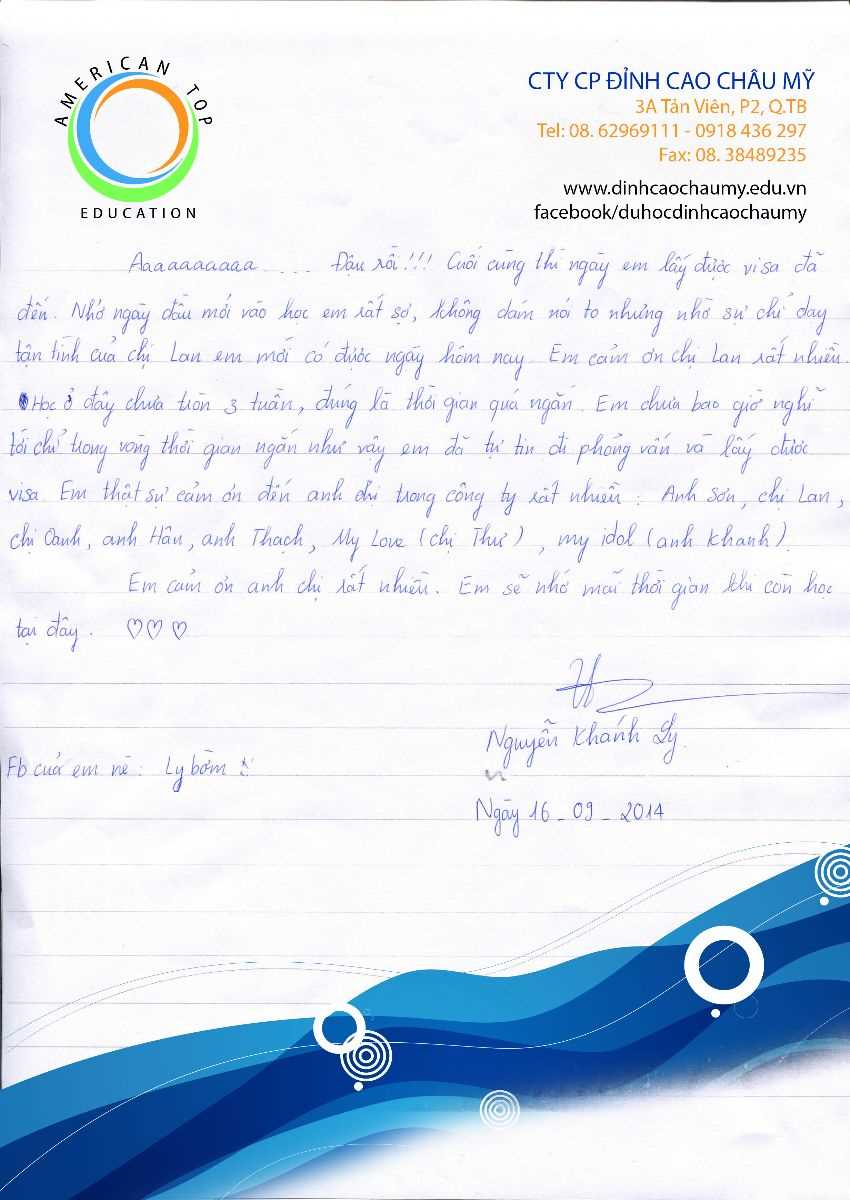 AMERICAN TOP
EDUCATION
CTY CP ĐỈNH CAO CHÂU MỸ
3A Tản Viên, P2, Q.TB
Tel: 08. 62969111 - 0918 436 297
Fax: 08. 38489235
www.dinhcaochaumy.edu.vn
facebook/duhocdinhcaochaumy
Aaaaaaaaaa .... Đậu rồi!!! Cuối cùng thì ngày em lấy được visa đã
đến. Nhớ ngày đầu mới vào học em rất sợ, không dám nói to nhưng nhờ sự chỉ dạy
tận tình của chị Lan em mới có được ngày hôm nay. Em cảm ơn chị Lan rất nhiều.
Học ở đây chưa tròn 3 tuần, đúng là thời gian quá ngắn. Em chưa bao giờ nghĩ
tới chỉ trong vòng thời gian ngắn như vậy em đã tự tin đi phỏng vấn và lấy được
visa. Em thật sự cảm ơn đến anh chị trong công ty rất nhiều: Anh Sơn, chị Lan,
chị Oanh, anh Hân, anh Thạch, My Love (chị Thư), my idol (anh Khanh).
Em cảm ơn anh chị rất nhiều. Em sẽ nhớ mãi thời gian khi còn học
tại đây. ♡♡♡
Nguyễn Khánh Ly
Fb của em nè: Ly bờm
Ngày 16_09_2014